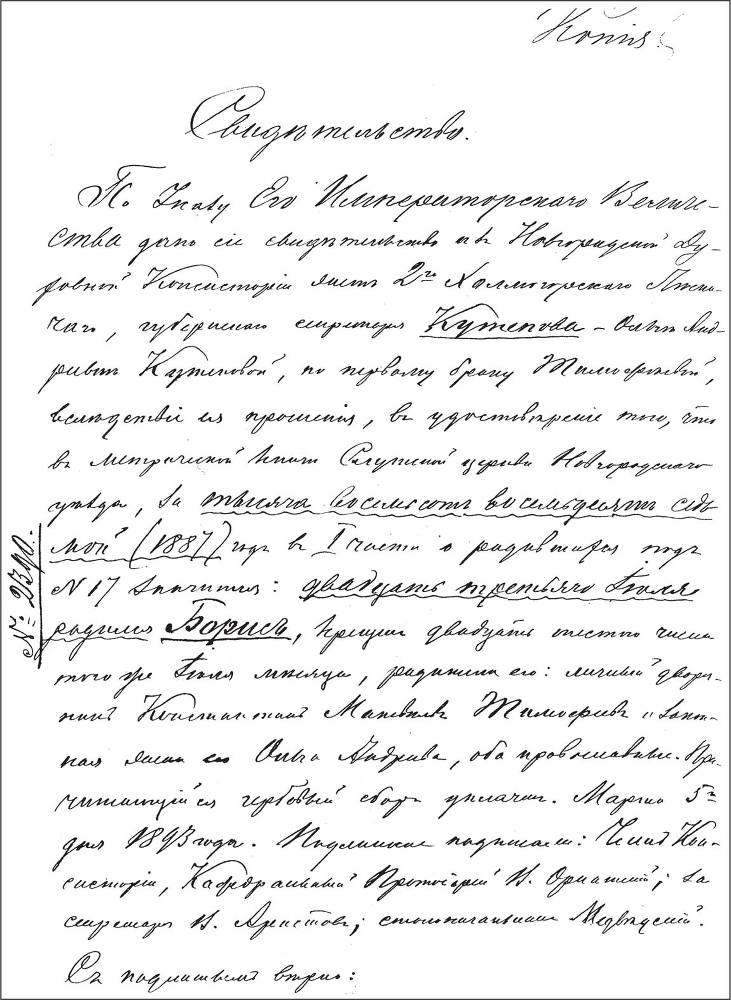 Копія
Свидѣтельство.
По Указу Его Императорскаго Величе-
ства дано сіе свидѣтельство изъ Новгородской Ду-
ховной Консисторіи женѣ 2го Холмогорскаго Лѣсни-
чаго, губернскаго секретаря Кутепова – Ольгѣ Анд-
реевнѣ Кутеповой, по первому браку Тимофеевой,
вслѣдствіе ея прошенія, въ удостовѣреніе того, что
въ метрической книгѣ церкви Новгородскаго
уѣзда, за тысяча восемьсотъ восемьдесятъ седь-
мой (1887) годъ въ I части о родившихся подъ
№ 17 значится: двадцать третьяго Іюля
родился Борисъ, крещенъ двадцать шестого числа
того же Іюля мѣсяца, родители его: личный дворя-
нинъ Константинъ Матвѣевъ Тимофеевъ и закон-
ная жена его Ольга Андреева, оба православные. При-
читающійся гербовый сборъ уплаченъ. Марта 5го
дня 1893 года. Подлинное подписали: Членъ Кон-
систоріи, Кафедральный Протоіерей В. Орнатскій; за
секретаря В. Аристовъ; столоначальникъ Медвѣдскій.
Съ подлиннымъ вѣрно:
№ 2390.